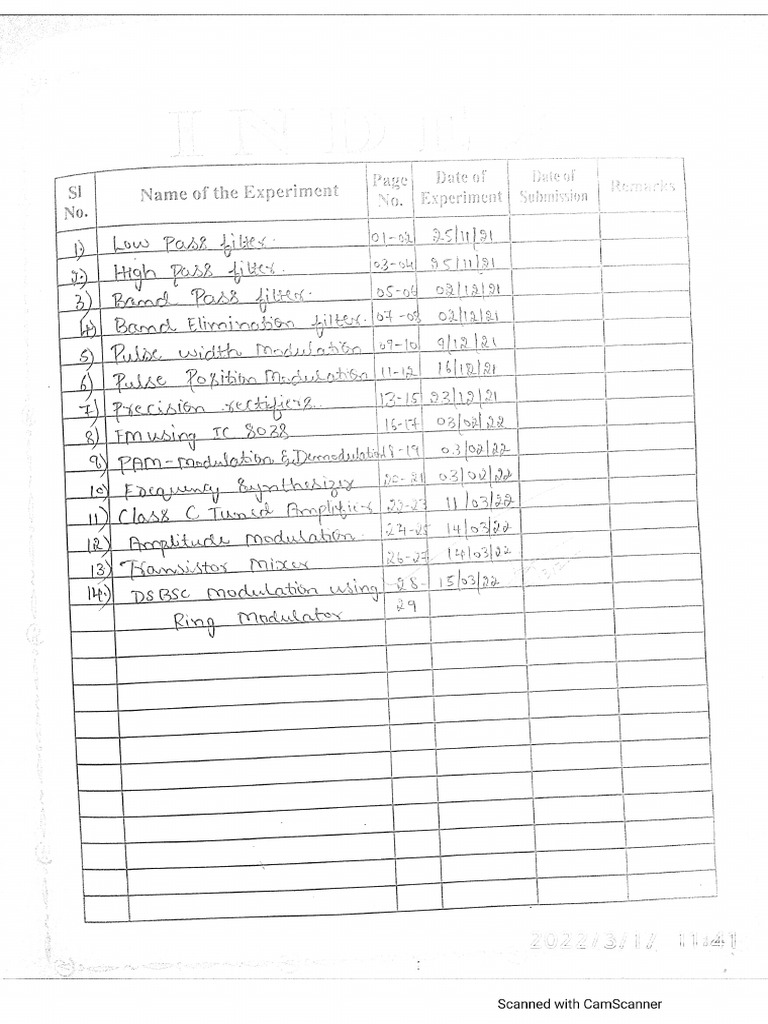 INDEX
Sl No. Name of the Experiment Page No. Date of Experiment Date of Submission Remarks
1) Low Pass filter. 01-02 25/11/21
2) High pass filter. 03-04 25/11/21
3) Band Pass filter. 05-06 02/12/21
4) Band Elimination filter. 07-08 02/12/21
5) Pulse width Modulation 09-10 9/12/21
6) Pulse Position Modulation 11-12 16/12/21
7) Precision rectifiers. 13-15 23/12/21
8) FM using IC 8038 16-17 03/02/22
9) PAM-Modulation & Demodulation 18-19 03/02/22
10) Frequency Synthesizer 20-21 03/02/22
11) Class C Tuned Amplifiers 22-23 11/03/22
12) Amplitude Modulation. 24-25 14/03/22
13) Transistor Mixer 26-27 14/03/22
14) DSBSC Modulation using 28- 15/03/22
Ring Modulator 29
2022/3/17 11:41
Scanned with CamScanner